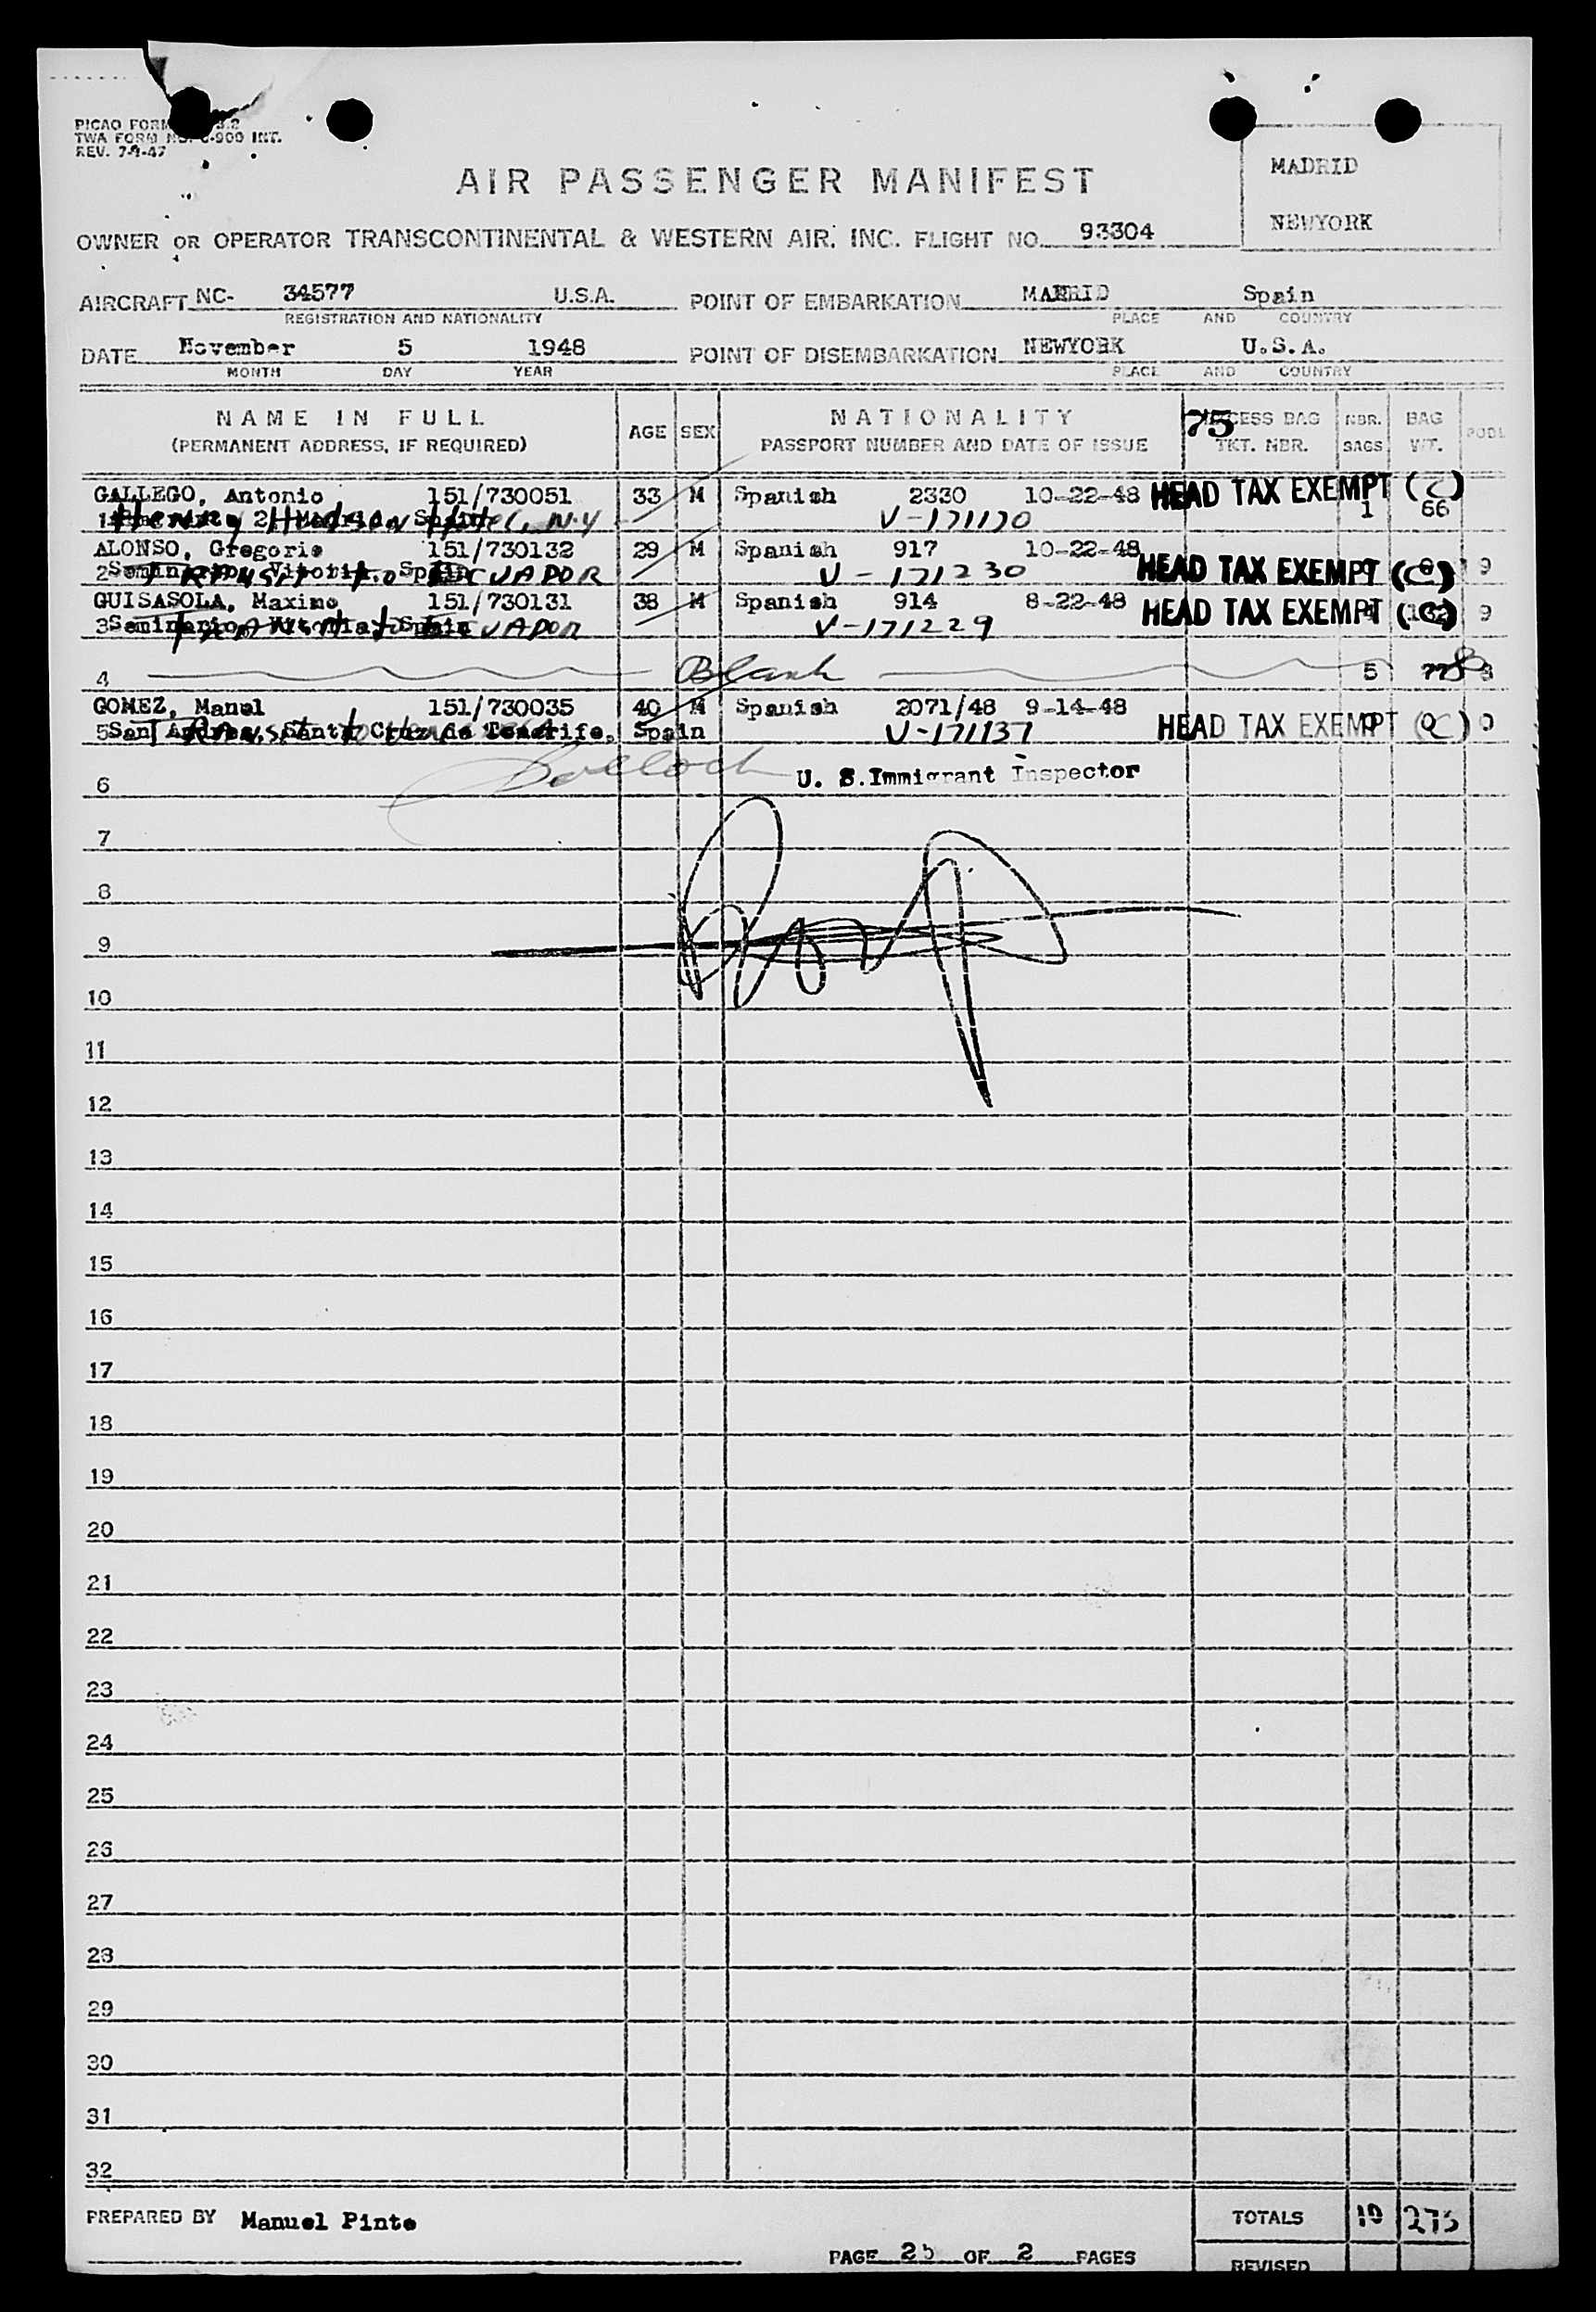 REV. 7-9-47
AIR PASSENGER MANIFEST
MADRID
NEWYORK
OWNER OR OPERATOR TRANSCONTINENTAL & WESTERN AIR, INC. FLIGHT NO. 93304
AIRCRAFT NC- 34577 U.S.A. POINT OF EMBARKATION MADRID Spain
REGISTRATION AND NATIONALITY PLACE AND COUNTRY
DATE November 5 1948 POINT OF DISEMBARKATION NEWYORK U.S.A.
MONTH DAY YEAR PLACE AND COUNTRY
NAME IN FULL AGE SEX NATIONALITY 75 BAG NBR. BAG
(PERMANENT ADDRESS, IF REQUIRED) PASSPORT NUMBER AND DATE OF ISSUE TKT. NBR. BAGS WT.
GALLEGO, Antonio 151/730051 33 M Spanish 2330 10-22-48 HEAD TAX EXEMPT (C)
1 Henry Hudson Hotel, N.Y V-171170 1 66
ALONSO, Gregorio 151/730132 29 M Spanish 917 10-22-48 HEAD TAX EXEMPT (C) 9
2 Seminario, Vitoria, Spain TRANSIT to ECUADOR V-171230
GUISASOLA, Maximo 151/730131 38 M Spanish 914 8-22-48 HEAD TAX EXEMPT (C) 9
3 Seminario, Vitoria, Spain TRANSIT to ECUADOR V-171229
4 Blank 5
GOMEZ, Manuel 151/730035 40 M Spanish 2071/48 9-14-48
5 San Andres, Santa Cruz de Tenerife, Spain V-171137 HEAD TAX EXEMPT (C) 0
6 U. S. Immigrant Inspector
7
8
9
10
11
12
13
14
15
16
17
18
19
20
21
22
23
24
25
26
27
28
29
30
31
32
PREPARED BY Manuel Pinto TOTALS 10 275
PAGE 2 OF 2 PAGES REVISED